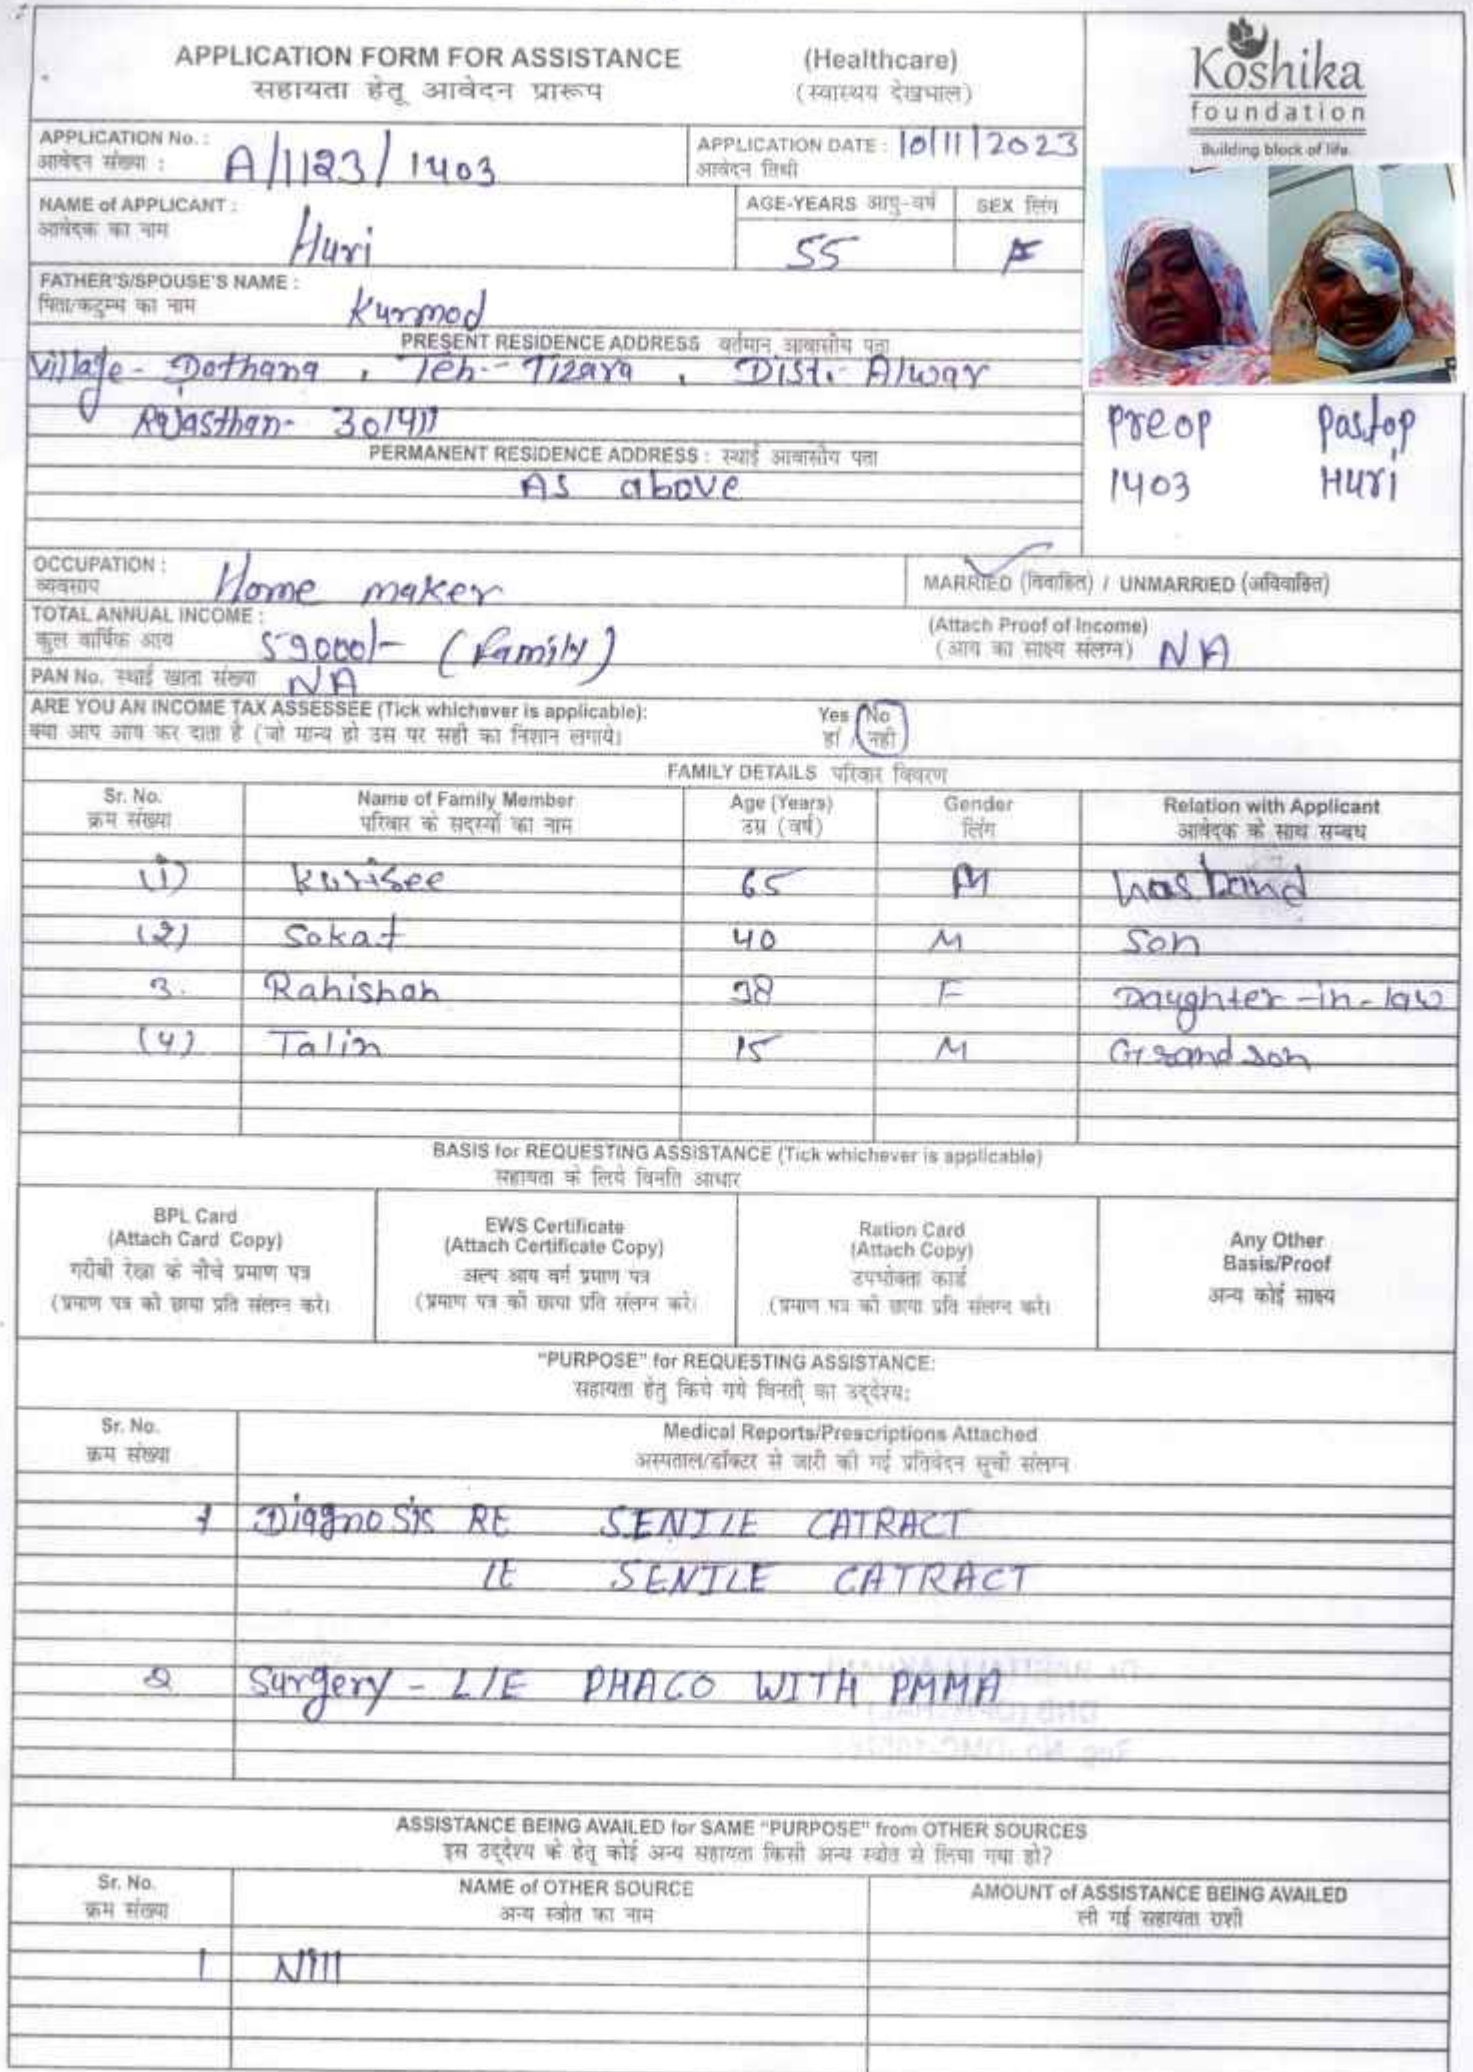 APPLICATION FORM FOR ASSISTANCE (Healthcare)
सहायता हेतू आवेदन प्रारूप (स्वास्थय देखभाल)
Koshika
foundation
Building block of life.
APPLICATION No. : A/1123/1403
आवेदन संख्या :
APPLICATION DATE : 10/11/2023
आवेदन तिथी
NAME of APPLICANT : Huri
आवेदक का नाम
AGE-YEARS आयु-वर्ष 55
SEX लिंग F
FATHER'S/SPOUSE'S NAME : Kurmod
पिता/कटुम्ब का नाम
PRESENT RESIDENCE ADDRESS वर्तमान आवासीय पता
Village - Dothana , Teh.- Tizara , Dist.- Alwar
Rajasthan- 301411
preop postop
1403 Huri
PERMANENT RESIDENCE ADDRESS : स्थाई आवासीय पता
As above
OCCUPATION : Home maker
व्यवसाय
MARRIED (विवाहित) / UNMARRIED (अविवाहित)
TOTAL ANNUAL INCOME : 59000/- (Family)
कुल वार्षिक आय
(Attach Proof of Income) NA
(आय का साक्ष्य संलग्न)
PAN No. स्थाई खाता संख्या NA
ARE YOU AN INCOME TAX ASSESSEE (Tick whichever is applicable): Yes / No
क्या आप आय कर दाता है (जो मान्य हो उस पर सही का निशान लगाये। हां / नही
FAMILY DETAILS परिवार विवरण
Sr. No. Name of Family Member Age (Years) Gender Relation with Applicant
क्रम संख्या परिवार के सदस्यों का नाम उम्र (वर्ष) लिंग आवेदक के साथ सम्बध
(1) Kurisee 65 M hasband
(2) Sokat 40 M Son
3. Rahishan 38 F Daughter-in-law
(4) Talin 15 M Grandson
BASIS for REQUESTING ASSISTANCE (Tick whichever is applicable)
सहायता के लिये विनति आधार
BPL Card
(Attach Card Copy)
गरीबी रेखा के नीचे प्रमाण पत्र
(प्रमाण पत्र की छाया प्रति संलग्न करे।
EWS Certificate
(Attach Certificate Copy)
अल्प आय वर्ग प्रमाण पत्र
(प्रमाण पत्र की छाया प्रति संलग्न करे।
Ration Card
(Attach Copy)
उपभोक्ता कार्ड
(प्रमाण पत्र की छाया प्रति संलग्न करे।
Any Other
Basis/Proof
अन्य कोई साक्ष्य
"PURPOSE" for REQUESTING ASSISTANCE:
सहायता हेतु किये गये विनती का उद्देश्य:
Sr. No. Medical Reports/Prescriptions Attached
क्रम संख्या अस्पताल/डॉक्टर से जारी की गई प्रतिवेदन सूची संलग्न
1 Diagnosis RE SENILE CATRACT
LE SENILE CATRACT
2 Surgery - L/E PHACO WITH PMMA
ASSISTANCE BEING AVAILED for SAME "PURPOSE" from OTHER SOURCES
इस उद्देश्य के हेतू कोई अन्य सहायता किसी अन्य स्त्रोत से लिया गया हो?
Sr. No. NAME of OTHER SOURCE AMOUNT of ASSISTANCE BEING AVAILED
क्रम संख्या अन्य स्त्रोत का नाम ली गई सहायता राशी
1 Nill